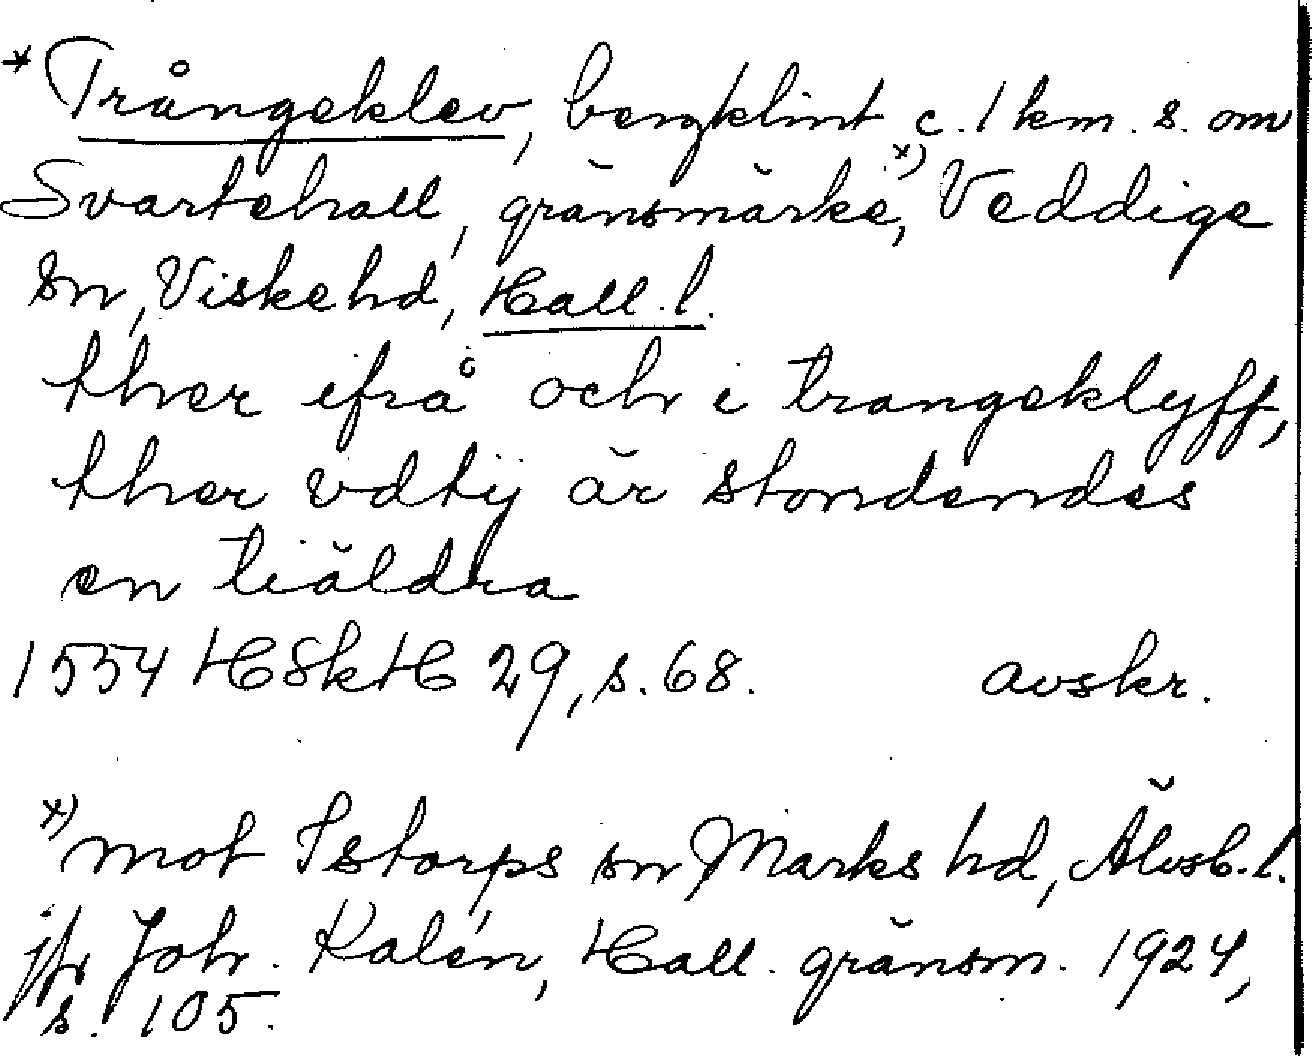 * Trångeklev, bergklint c. 1 km. s. om
Svartehall, gränsmärke,x) Veddige
sn, Viske hd, Hall. l.
ther ifrå och i trangeklyff,
ther vdtij är stondendes
en tiäldra
1554 HSkH 29, s. 68. avskr.
x) mot Istorps sn Marks hd, Älvsb. l.
jfr Joh. Kalén, Hall. gränsm. 1924,
s. 105.